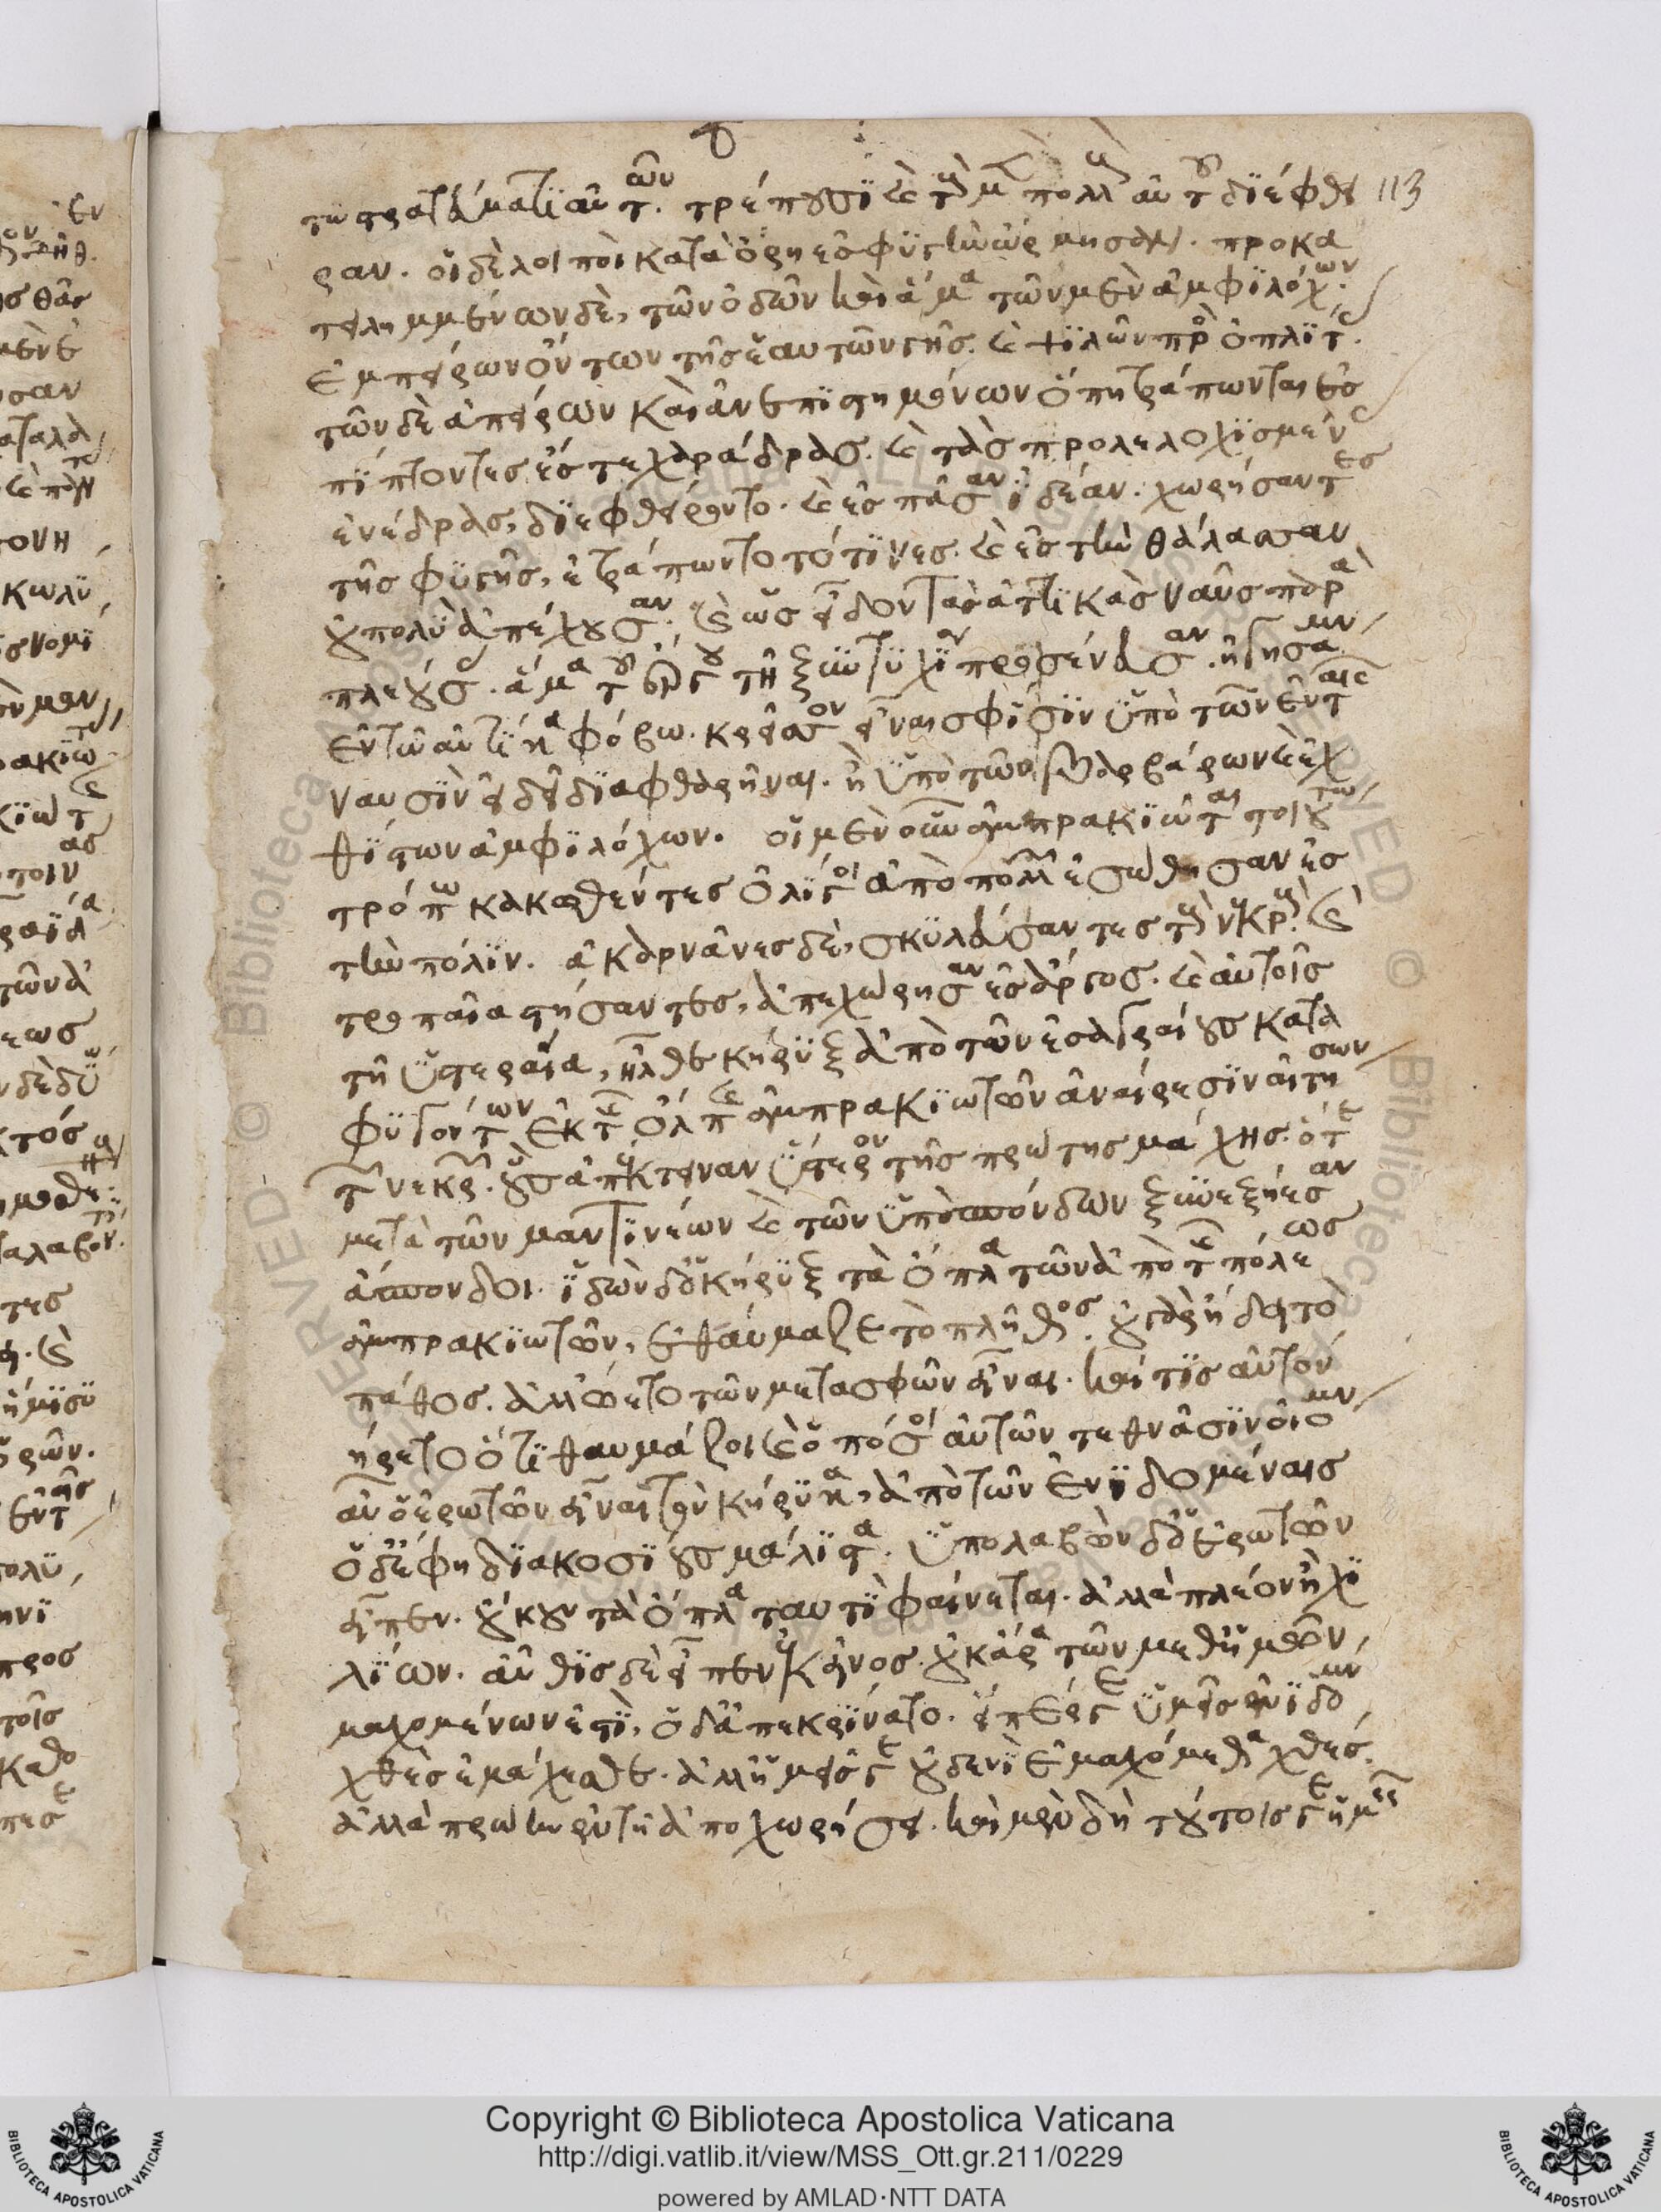 τῶ στρατεύματι αὐτῶν. τρέπουσι καὶ τοὺς μὲν πολλοὺς αὐτοῦ διέφθει
ραν. οἱ δὲ λοιποὶ κατὰ ὄρη ἐς φυγὴν ὥρμησαν. προκα
τειλημμένων δὲ, τῶν ὁδῶν καὶ ἅμα τῶν μὲν ἀμφιλόχων.
ἐμπείρων ὄντων τῆς ἑαυτῶν γῆς. καὶ ψιλῶν πρὸς ὁπλίτας.
τῶν δὲ ἀπείρων καὶ ἀνεπιστημόνων ὅπη τράπωνται ἐσ
πίπτοντες ἐς τε χαράδρας. καὶ τὰς προλελοχισμένας
ἐνέδρας, διεφθείροντο. καὶ ἐς πᾶσαν ἰδέαν. χωρήσαντες
τῆς φυγῆς, ἐτράπωντο τό τινες. καὶ ἐς τὴν θάλασσαν
οὐ πολὺ ἀπέχουσαν. καὶ ὡς εἶδον τὰς ἀττικὰς ναῦς παρα
πλεούσας. ἅμα τοῦ ἔργου τῆ ξυντυχία προσένευσαν. ἡγησάμενοι
ἐν τῶ αὐτίκα φόβω. κρεῖσσον εἶναι σφίσιν ὑπὸ τῶν ἐν ταῖς
ναυσὶν εἰ δεῖ διαφθαρῆναι. ἢ ὑπὸ τῶν βαρβάρων καὶ ἐχ
θίστων ἀμφιλόχων. οἱ μὲν οὖν ἀμπρακιῶται τοιούτω
τρόπω κακωθέντες ὀλίγοι ἀπὸ πολλῶν ἐσώθησαν ἐς
τὴν πόλιν. ἀκαρνᾶνες δὲ, σκυλεύσαντες τοὺς νεκροὺς. καὶ
τροπαῖα στήσαντες, ἀπεχώρησαν ἐς ἄργος. καὶ αὐτοῖς
τῆ ὑστεραία, ἦλθε κήρυξ ἀπὸ τῶν ἐς ἀγραίους κατα
φυγόντων ἐκ τῆς ὄλπης ἀμπρακιωτῶν ἀναίρεσιν αἰτήσων
τῶν νεκρῶν. οὓς ἀπέκτειναν ὕστερον τῆς πρώτης μάχης. ὅτε
μετὰ τῶν μαντινέων καὶ τῶν ὑποσπόνδων ξυνεξήεσαν
ἄσπονδοι. ἰδὼν δ' ὁ κήρυξ τὰ ὅπλα τῶν ἀπὸ τῆς πόλεως
ἀμπρακιωτῶν, ἐθαύμαζε τὸ πλῆθος. οὐ γὰρ ἤδει τὸ
πάθος. ἀλλ' ᾤετο τῶν μετὰ σφῶν εἶναι. καί τις αὐτὸν
ἤρετο ὅτι θαυμάζοι καὶ ὁπόσοι αὐτῶν τεθνᾶσιν οἰόμενος
αὖ ὁ ἐρωτῶν εἶναι τὸν κήρυκα, ἀπὸ τῶν ἐν ἰδομέναις
ὁ δ' ἔφη διακοσίους μάλιστα. ὑπολαβὼν δ' ὁ ἐρωτῶν
εἶπεν. οὔκουν τὰ ὅπλα ταυτὶ φαίνεται. ἀλλὰ πλέον ἢ χι
λίων. αὖθις δὲ εἶπεν ἐκεῖνος. οὐκ ἄρα τῶν μεθ' ἡμῶν,
μαχομένων ἐστὶ, ὁ δ' ἀπεκρίνατο. εἴπερ γε ὑμεῖς ἐν ἰδομένη
χθὲς ἐμάχεσθε. ἀλλ' ἡμεῖς γε οὐδενὶ ἐμαχόμεθα χθές.
ἀλλὰ πρώην ἐν τῆ ἀποχωρήσει. καὶ μὲν δὴ τούτοις γε ἡμεῖς
113
Copyright © Biblioteca Apostolica Vaticana
http://digi.vatlib.it/view/MSS_Ott.gr.211/0229
powered by AMLAD·NTT DATA
BIBLIOTECA APOSTOLICA VATICANA
BIBLIOTECA APOSTOLICA VATICANA